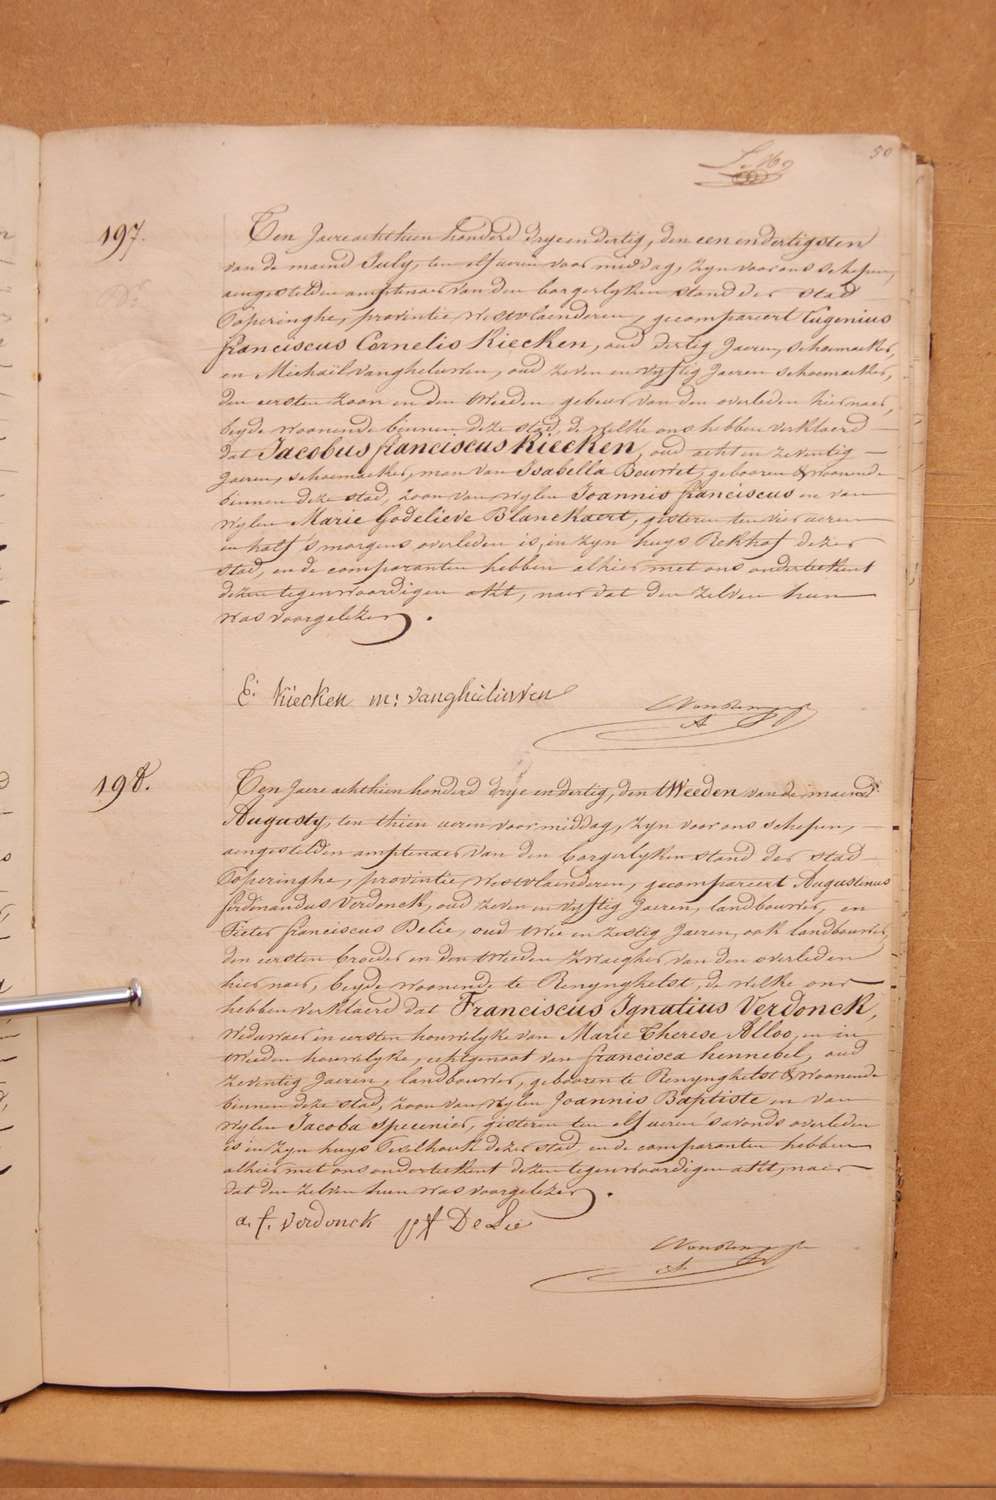 50
197.
Ten Jaere achthien honderd dryeendertig, den een en dertigsten
van de maend July, ten elf ueren voor middag, zyn voor ons schepen,
aengestelden amptenaer van den borgerlyken stand der stad
Poperinghe, provintie Westvlaenderen, gecompareert Eugenius
franciscus Cornelis Kiecken, oud dertig Jaeren, schoemaeker,
en Michaël Vangheluwen, oud zeven en vyftig Jaeren schoemaeker,
den eersten zoon en den tweeden gebeur van den overleden hiernaer,
beyde woonende binnen deze stad, de welke ons hebben verklaerd
dat Jacobus franciscus Kiecken, oud acht en zeventig
Jaeren, schoemaeker, man van Isabella Bouvret, gebooren & woonende
binnen deze stad, zoon van wylen Joannis franciscus en van
wylen Marie Godelieve Blanckaert, gisteren ten vier ueren
en half s'morgens overleden is, in zyn huys Rekhof dezer
stad, en de comparanten hebben alhier met ons onderteekent
dezen tegenwoordigen akt, naer dat den zelven hun
was voorgelezen.
E. Kiecken m: vangheluwen
198.
Ten Jaere achthien honderd dryeendertig, den tWeeden van de maend
Augusty, ten thien ueren voor middag, zyn voor ons schepen,
aengestelden amptenaer van den borgerlyken stand der stad
Poperinghe, provintie Westvlaenderen, gecompareert Augustinus
ferdinandus Verdonck, oud zeven en vyftig Jaeren, landbouwer, en
Pieter franciscus Delie, oud twee en zestig Jaeren, ook landbouwer,
den eersten broeder en den tweeden zwaegher van den overleden
hier naer, beyde woonende te Renynghelst, de welke ons
hebben verklaerd dat Franciscus Ignatius Verdonck,
weduwaer in eersten houwelyke van Marie Therese Alloo, en in
tweeden houwelyke, echtgenoot van francisca hennebel, oud
zeventig Jaeren, landbouwer, gebooren te Renynghelst & woonende
binnen deze stad, zoon van wylen Joannis Baptiste en van
wylen Jacoba Specenier, gisteren ten elf ueren s'avonds overleden
is in zyn huys dezer stad, en de comparanten hebben
alhier met ons onderteekent dezen tegenwoordigen akt, naer
dat den zelven hun was voorgelezen.
a. f. verdonck pf De Lie